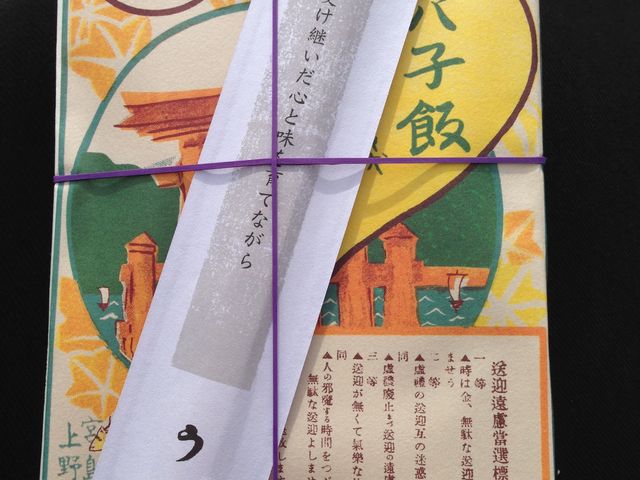 穴子飯
受け継いだ心と味を育てながら
う
送迎遠慮當選標
一等
▲時は金、無駄な送迎
ませう
二等
▲虚禮の送迎互の迷惑
同
▲虚禮廢止まづ送迎の遠慮
三等
▲送迎が無くて氣樂な
同
▲人の邪魔する時間をつ
無駄な送迎よしませ
宮島
上野